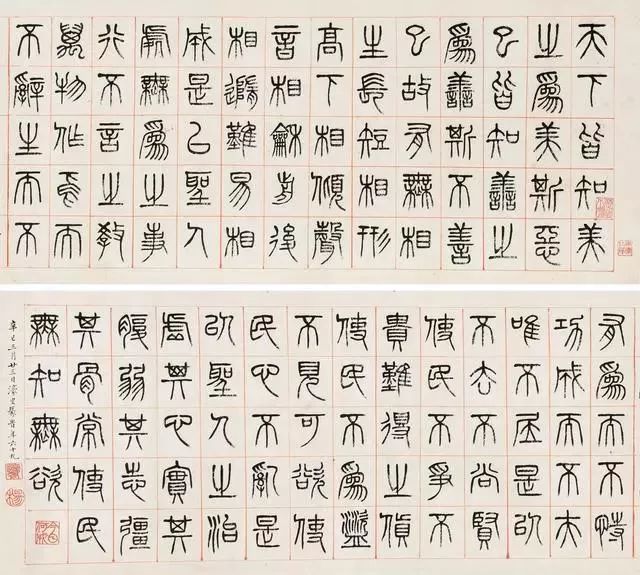 天下皆知美
之爲美斯惡
已皆知善之
爲善斯不善
已故有無相
生長短相形
高下相傾聲
音相龢前後
相隨難易相
成是以聖人
處無爲之事
行不言之教
萬物作焉而
不辭生而不
有爲而不恃
功成而不夫
唯不居是以
不去不尚賢
使民不爭不
貴難得之貨
使民不爲盜
不見可欲使
民心不亂是
以聖人之治
虛其心實其
腹弱其志彊
其骨常使民
無知無欲
辛巳三月廿三日濠叟篆旹年六十九